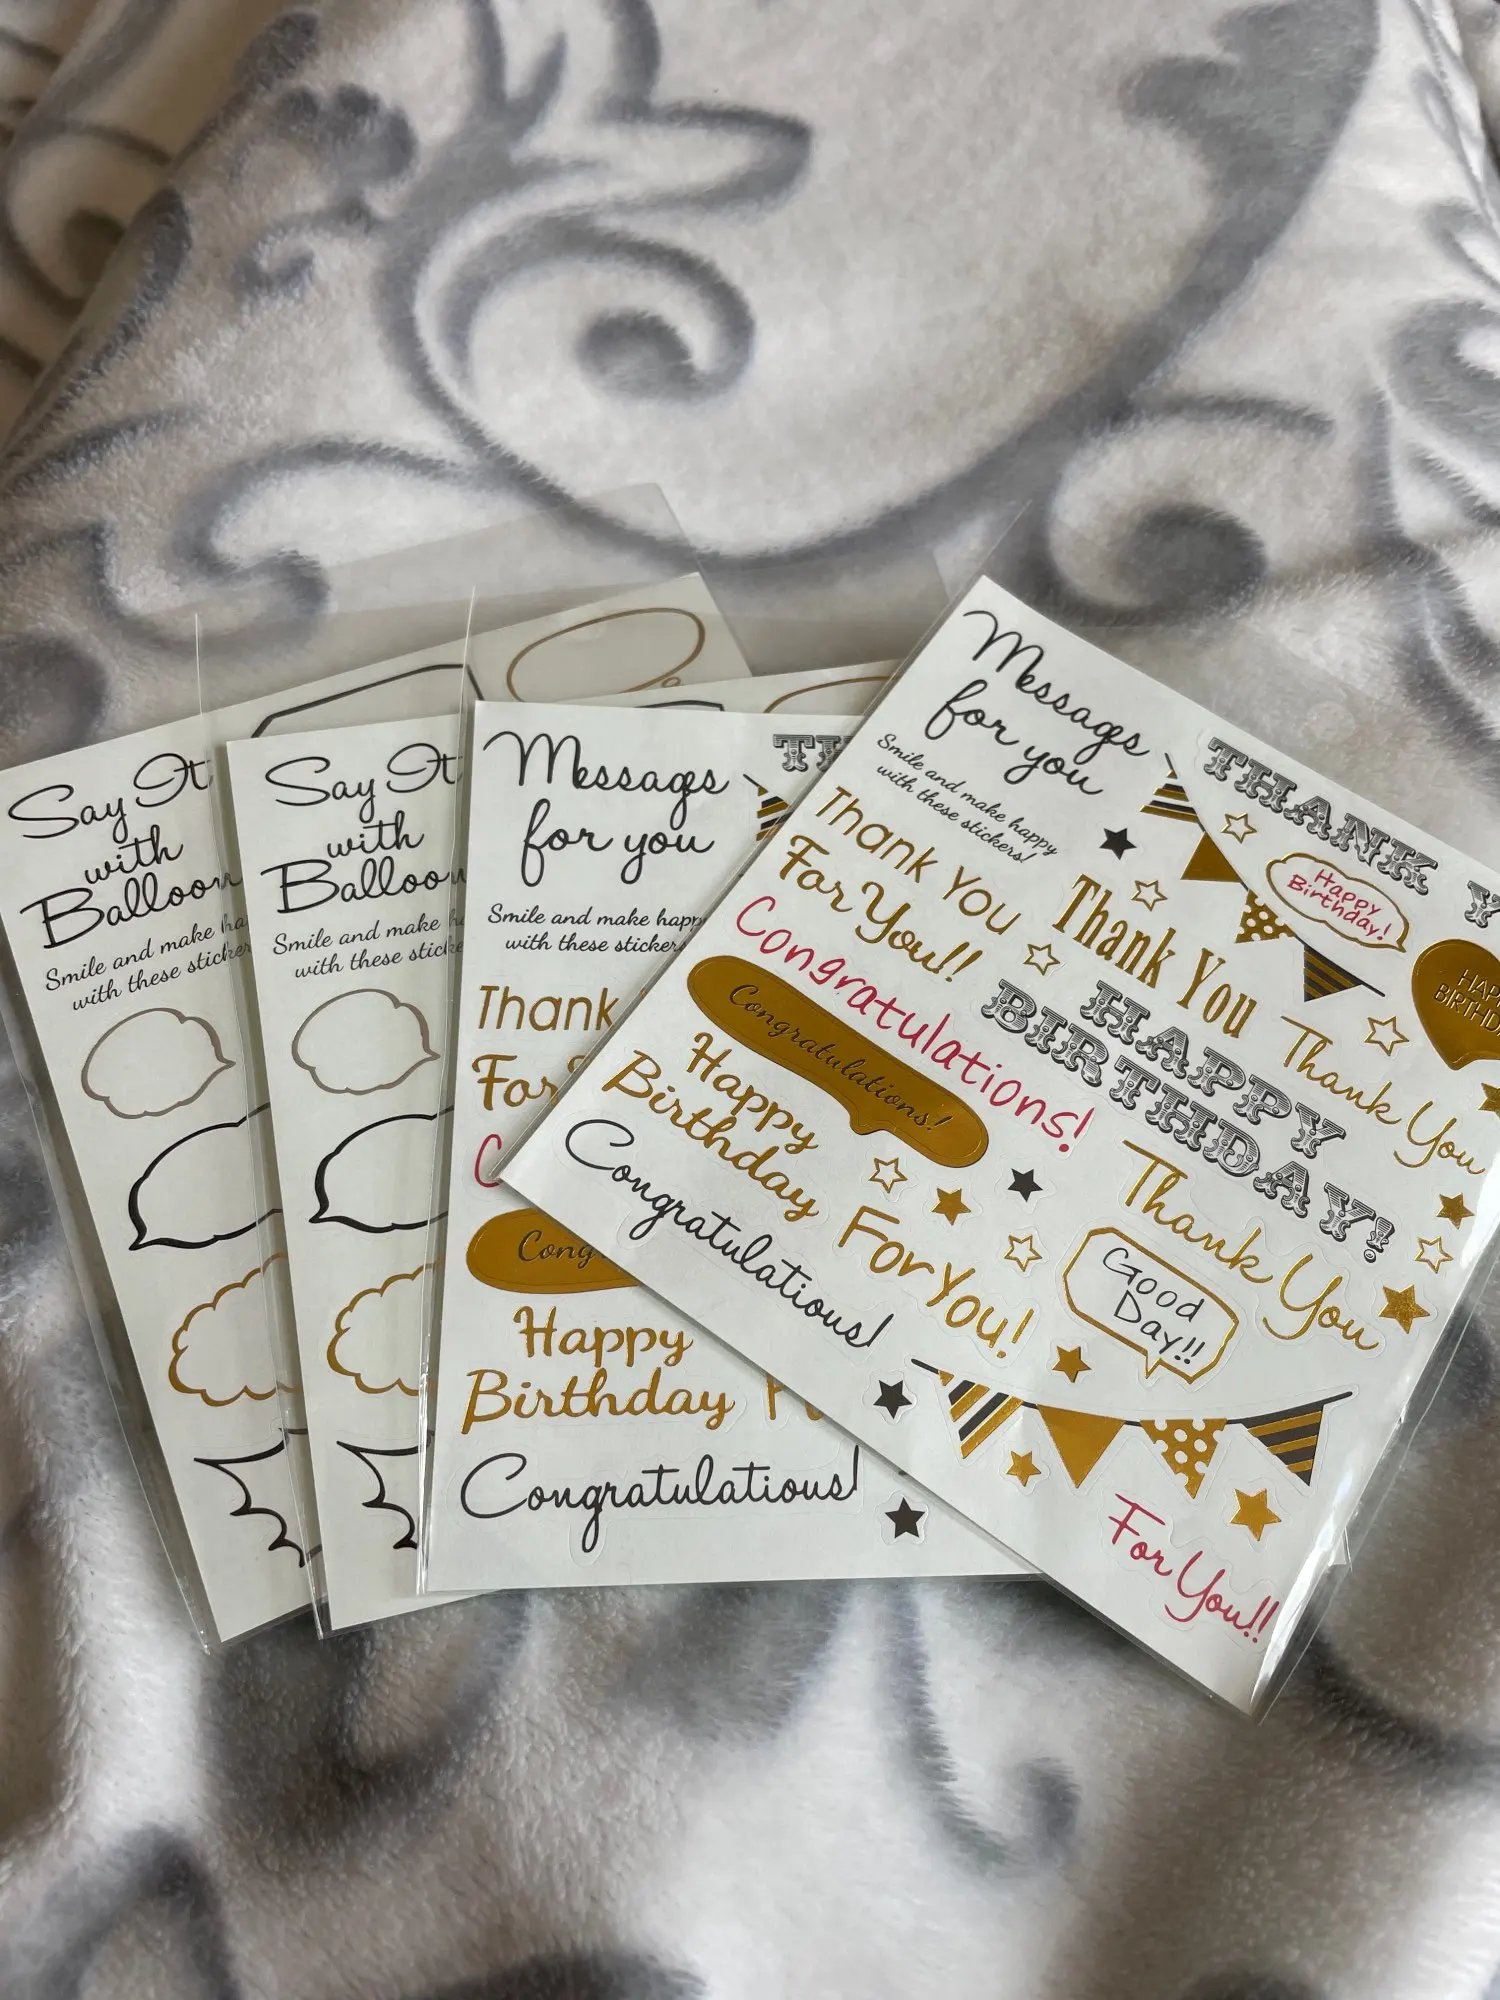 Say It
with
Balloon
Smile and make ha
with these sticker
Say It
with
Balloo
Smile and make h
with these stick
Messages
for you
Smile and make happ
with these sticker
TH
Thank
For
C
Cong
Happy
Birthday
Congratulations!
Messages
for you
Smile and make happy
with these stickers!
THANK Y
Thank You
For You!!
Happy
Birthday!
HAPP
BIRTHD
Thank You
Congratulations!
Congratulations!
HAPPY
BIRTHDAY!
Thank You
Happy
Birthday
Thank You
Congratulations!
For You!
Good
Day!!
For You!!